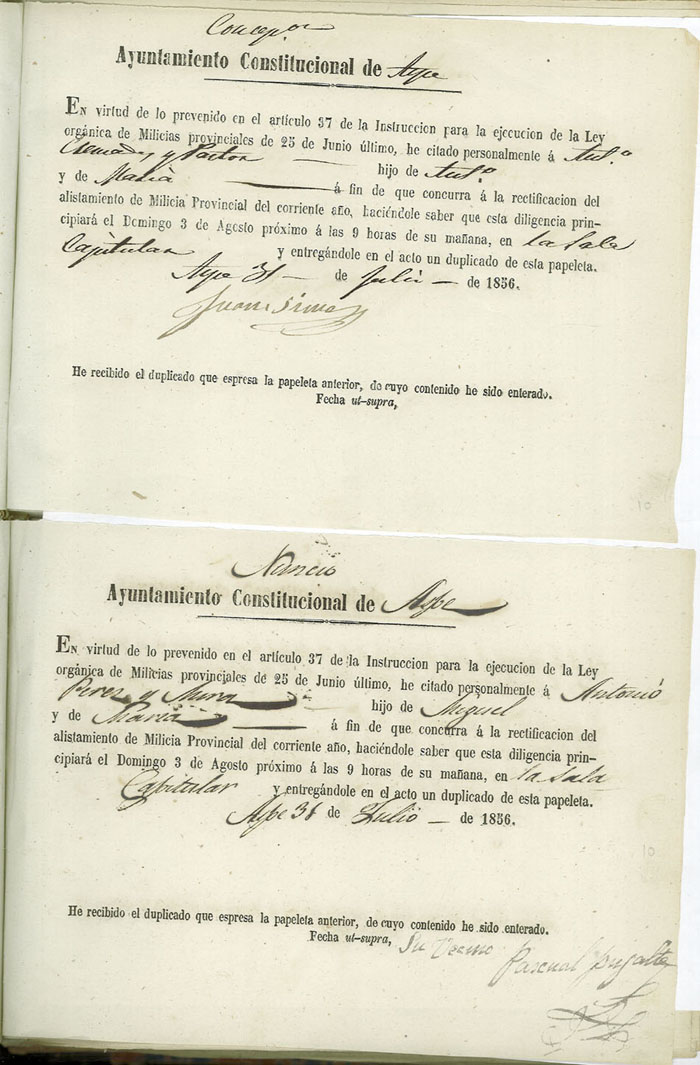 Concepon
Ayuntamiento Constitucional de Aspe
EN virtud de lo prevenido en el artículo 37 de la Instruccion para la ejecucion de la Ley
orgánica de Milicias provinciales de 25 de Junio último, he citado personalmente á Anto
Cremades y Pastor hijo de Anto
y de Maria á fin de que concurra á la rectificacion del
alistamiento de Milicia Provincial del corriente año, haciéndole saber que esta diligencia prin-
cipiará el Domingo 3 de Agosto próximo á las 9 horas de su mañana, en la Sala
Capitular y entregándole en el acto un duplicado de esta papeleta.
Aspe 31 de Julio de 1856.
He recibido el duplicado que espresa la papeleta anterior, de cuyo contenido he sido enterado.
Fecha ut-supra,
10
Nuncio
Ayuntamiento Constitucional de Aspe
EN virtud de lo prevenido en el artículo 37 de la Instruccion para la ejecucion de la Ley
orgánica de Milicias provinciales de 25 de Junio último, he citado personalmente á Antonio
Perez y Mira hijo de Miguel
y de Maria á fin de que concurra á la rectificacion del
alistamiento de Milicia Provincial del corriente año, haciéndole saber que esta diligencia prin-
cipiará el Domingo 3 de Agosto próximo á las 9 horas de su mañana, en la Sala
Capitular y entregándole en el acto un duplicado de esta papeleta.
Aspe 31 de Julio de 1856.
10
He recibido el duplicado que espresa la papeleta anterior, de cuyo contenido he sido enterado.
Fecha ut-supra, Su Vecino Pascual